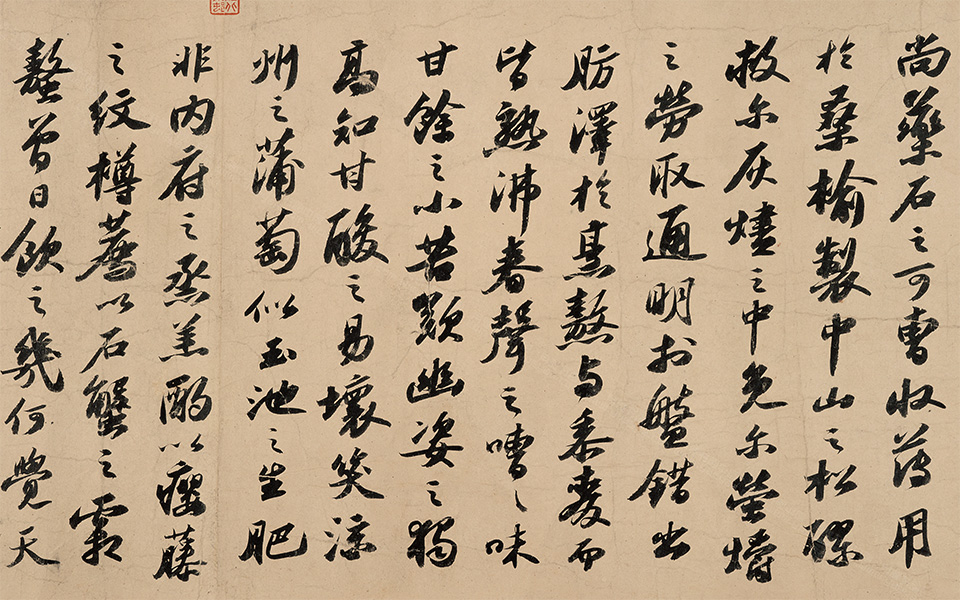 尚藥石之可曹收薄用
於桑榆製中山之松醪
救尓灰燼之中免尓螢爝
之勞取通明於盤錯出
肪澤於烹熬与黍麥而
皆熟沸舂聲之嘈〻味
甘餘之小苦歎幽姿之獨
高知甘酸之易壞笑涼
州之蒲萄似玉池之生肥
非內府之烝羔酌以癭藤
之紋樽薦以石蟹之霜
螯曾日飲之幾何覺天